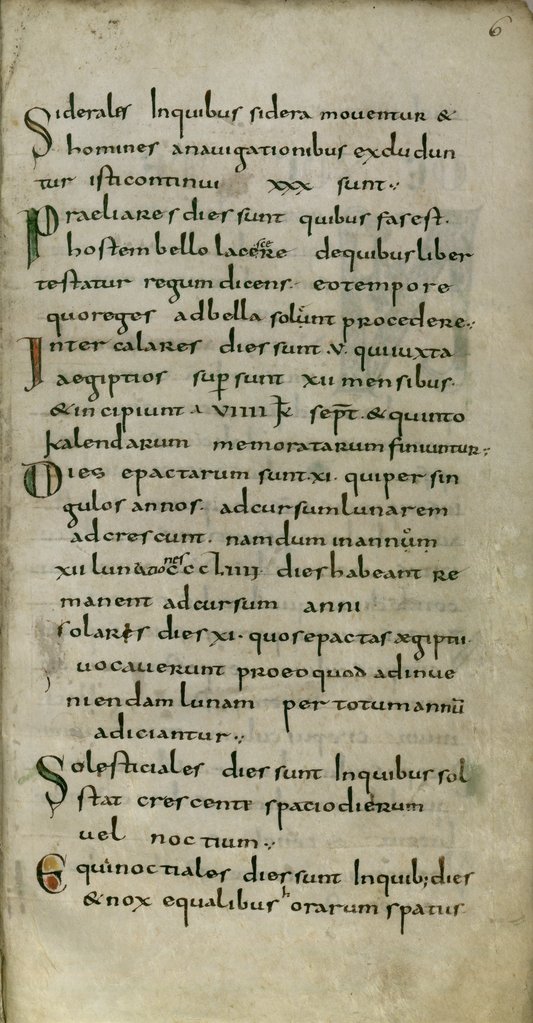 6
Siderales Inquibus sidera moventur &
homines anauigationibus excludun
tur isticontinui xxx sunt.
Praeliares dies sunt quibus fas est.
hostem bello lacescere dequibus liber
testatur regum dicens. eo tempore
quo reges ad bella solunt procedere.
Inter calares dies sunt .v. qui iuxta
aegiptios super sunt xii mensibus.
& incipiunt a VIIII k sept̄. & quinto
kalendarum memoratarum finiuntur.
Dies epactarum sunt .xi. qui per sin
gulos annos. ad cursum lunarem
ad crescunt. nam dum in annum
xii lunationes cccLIIII dies habeant re
manent ad cursum anni
solares dies xi. quos epactas ægiptii
uocauerunt pro eo quod ad inue
niendam lunam per totum annū
adiciantur.
Solesticiales dies sunt Inquibus sol
stat crescente spacio dierum
uel noctium.
Equinoctiales dies sunt Inquib; dies
& nox equalibus horarum spatiis